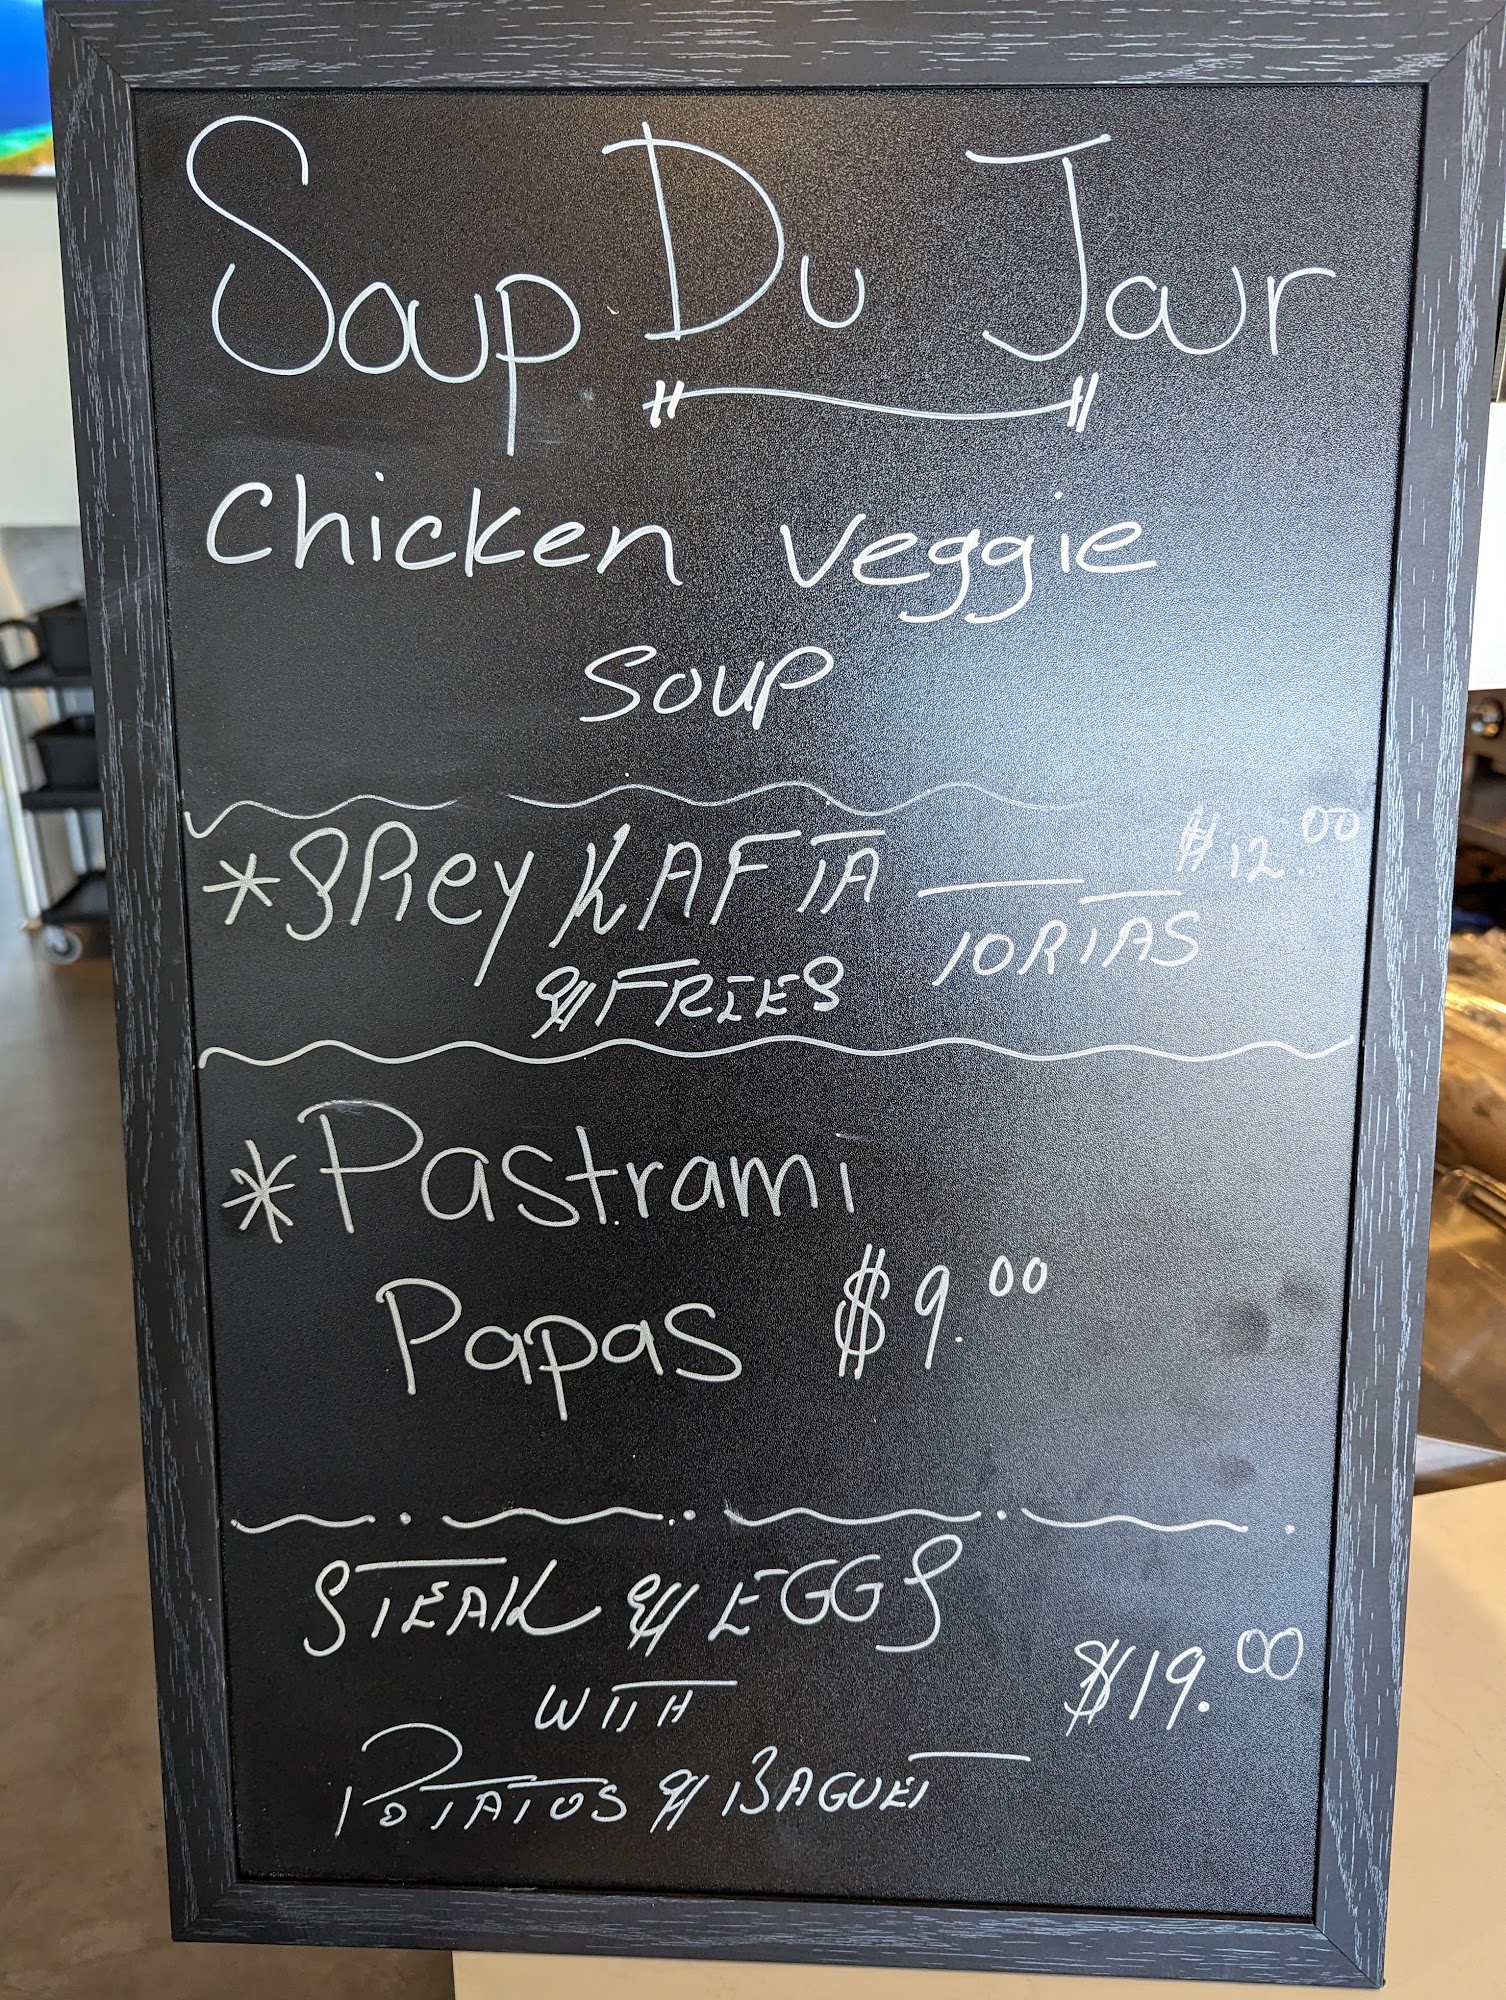 Soup Du Jour
Chicken Veggie
Soup
*SPicy KAFTA TORTAS $12.00
& FRIES
*Pastrami
Papas $9.00
STEAK & EGGS
WITH $19.00
POTATOS & BAGUET